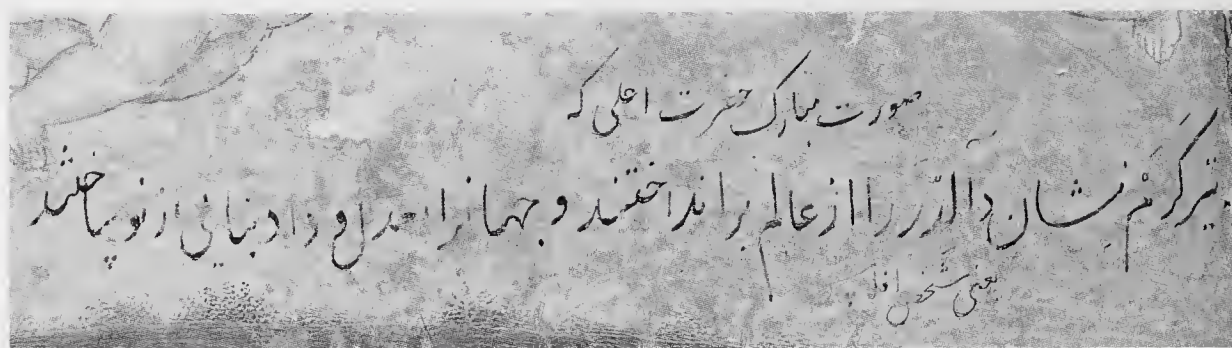 صورت مبارک حضرت اعلی که
بتیر کرم نشان دالدّر را از عالم برانداختند و جهانرا بعدل و داد بنایی از نو ساختند
یعنی شخص افلاس